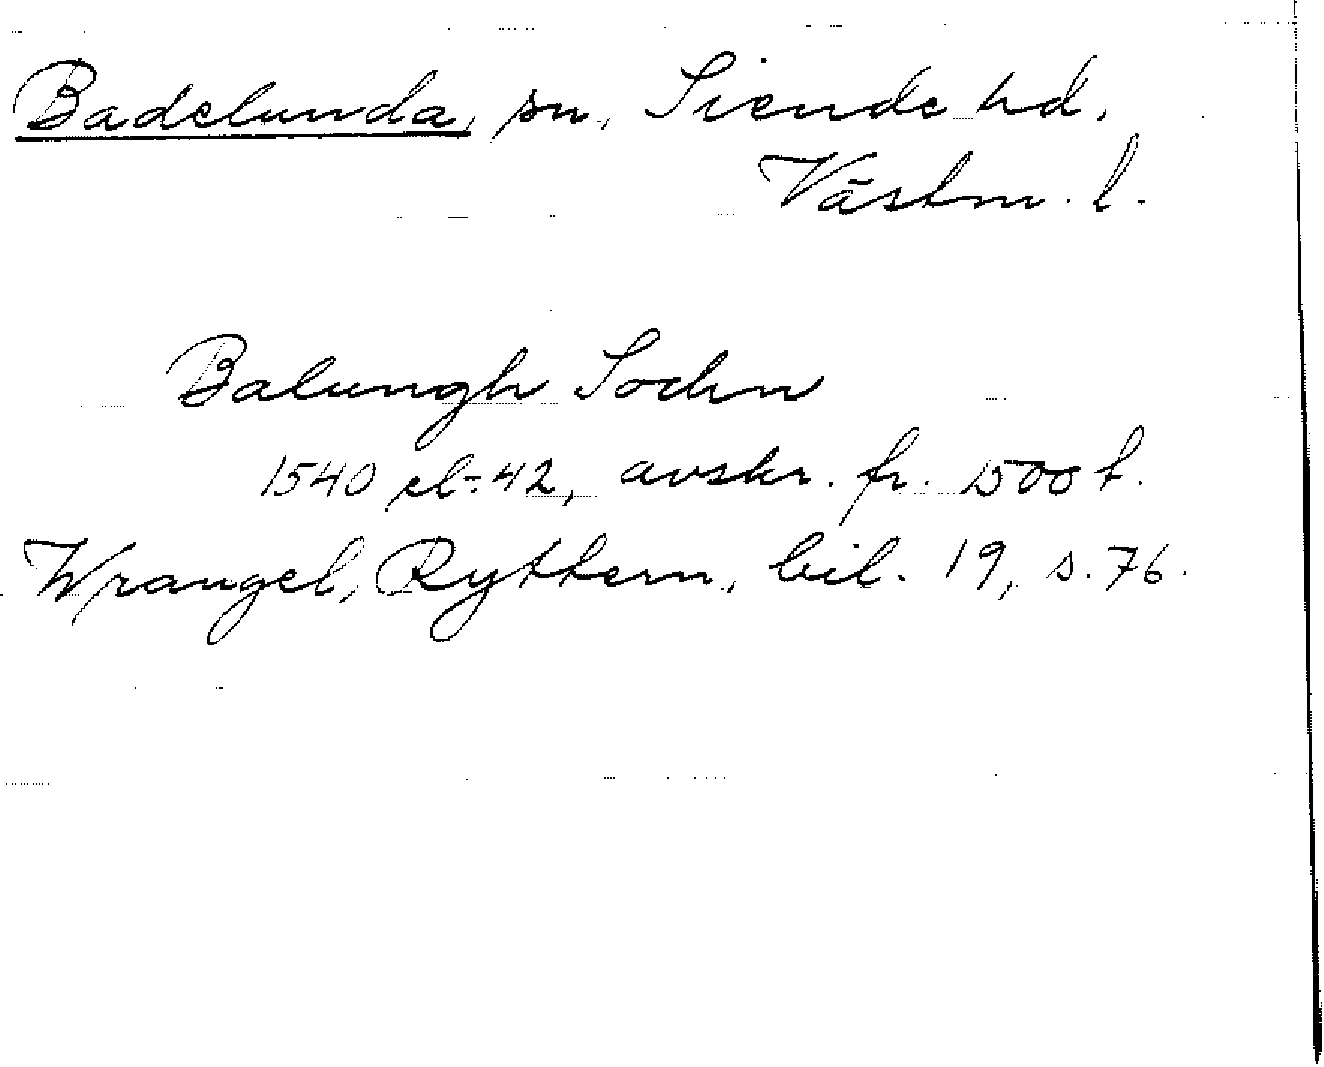 Badelunda, sn, Siende hd.
Västm. l.
Balungh Sochn
1540 el. 42, avskr. fr. 1500 t.
Wrangel, Ryttern, bil. 19, s. 76.